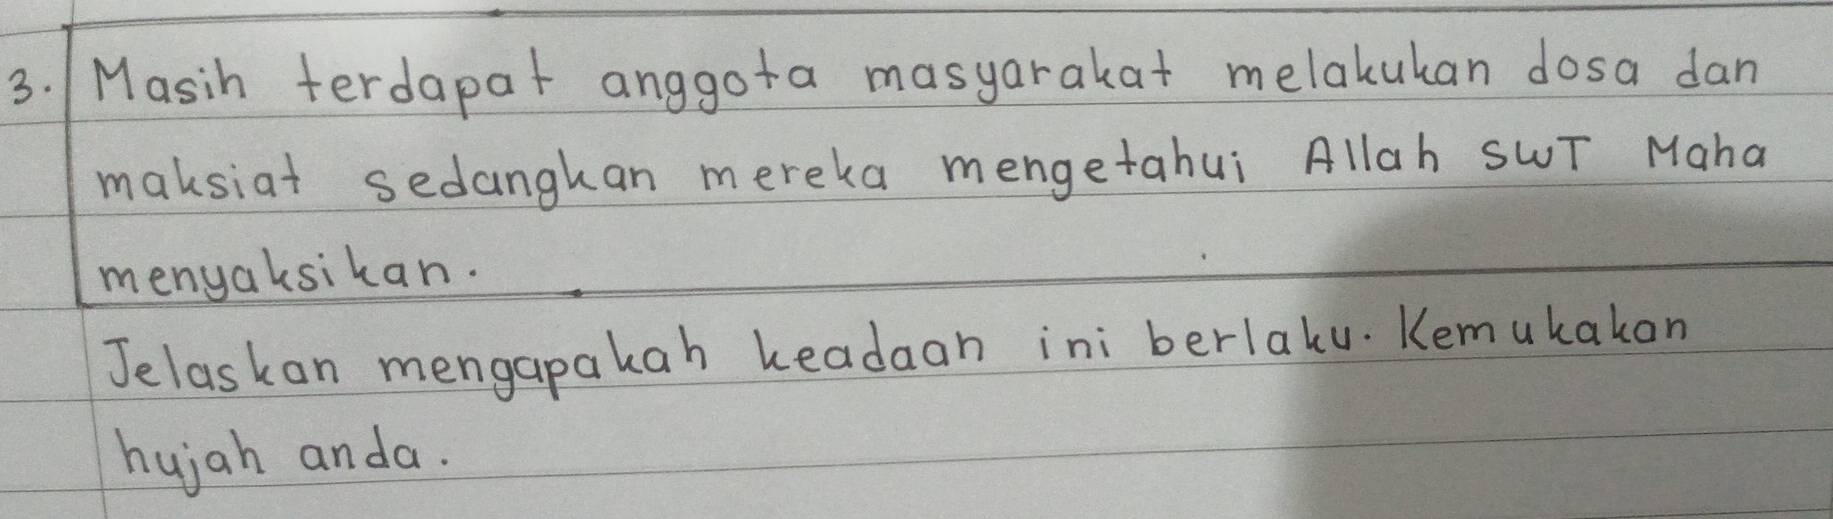 3. Masih terdapat anggota masyarakat melakukan dosa dan
maksiat sedangkan mereka mengetahui Allah SWT Maha
menyaksikan.
Jelaskan mengapakah keadaan ini berlaku. Kemukakan
hujah anda.